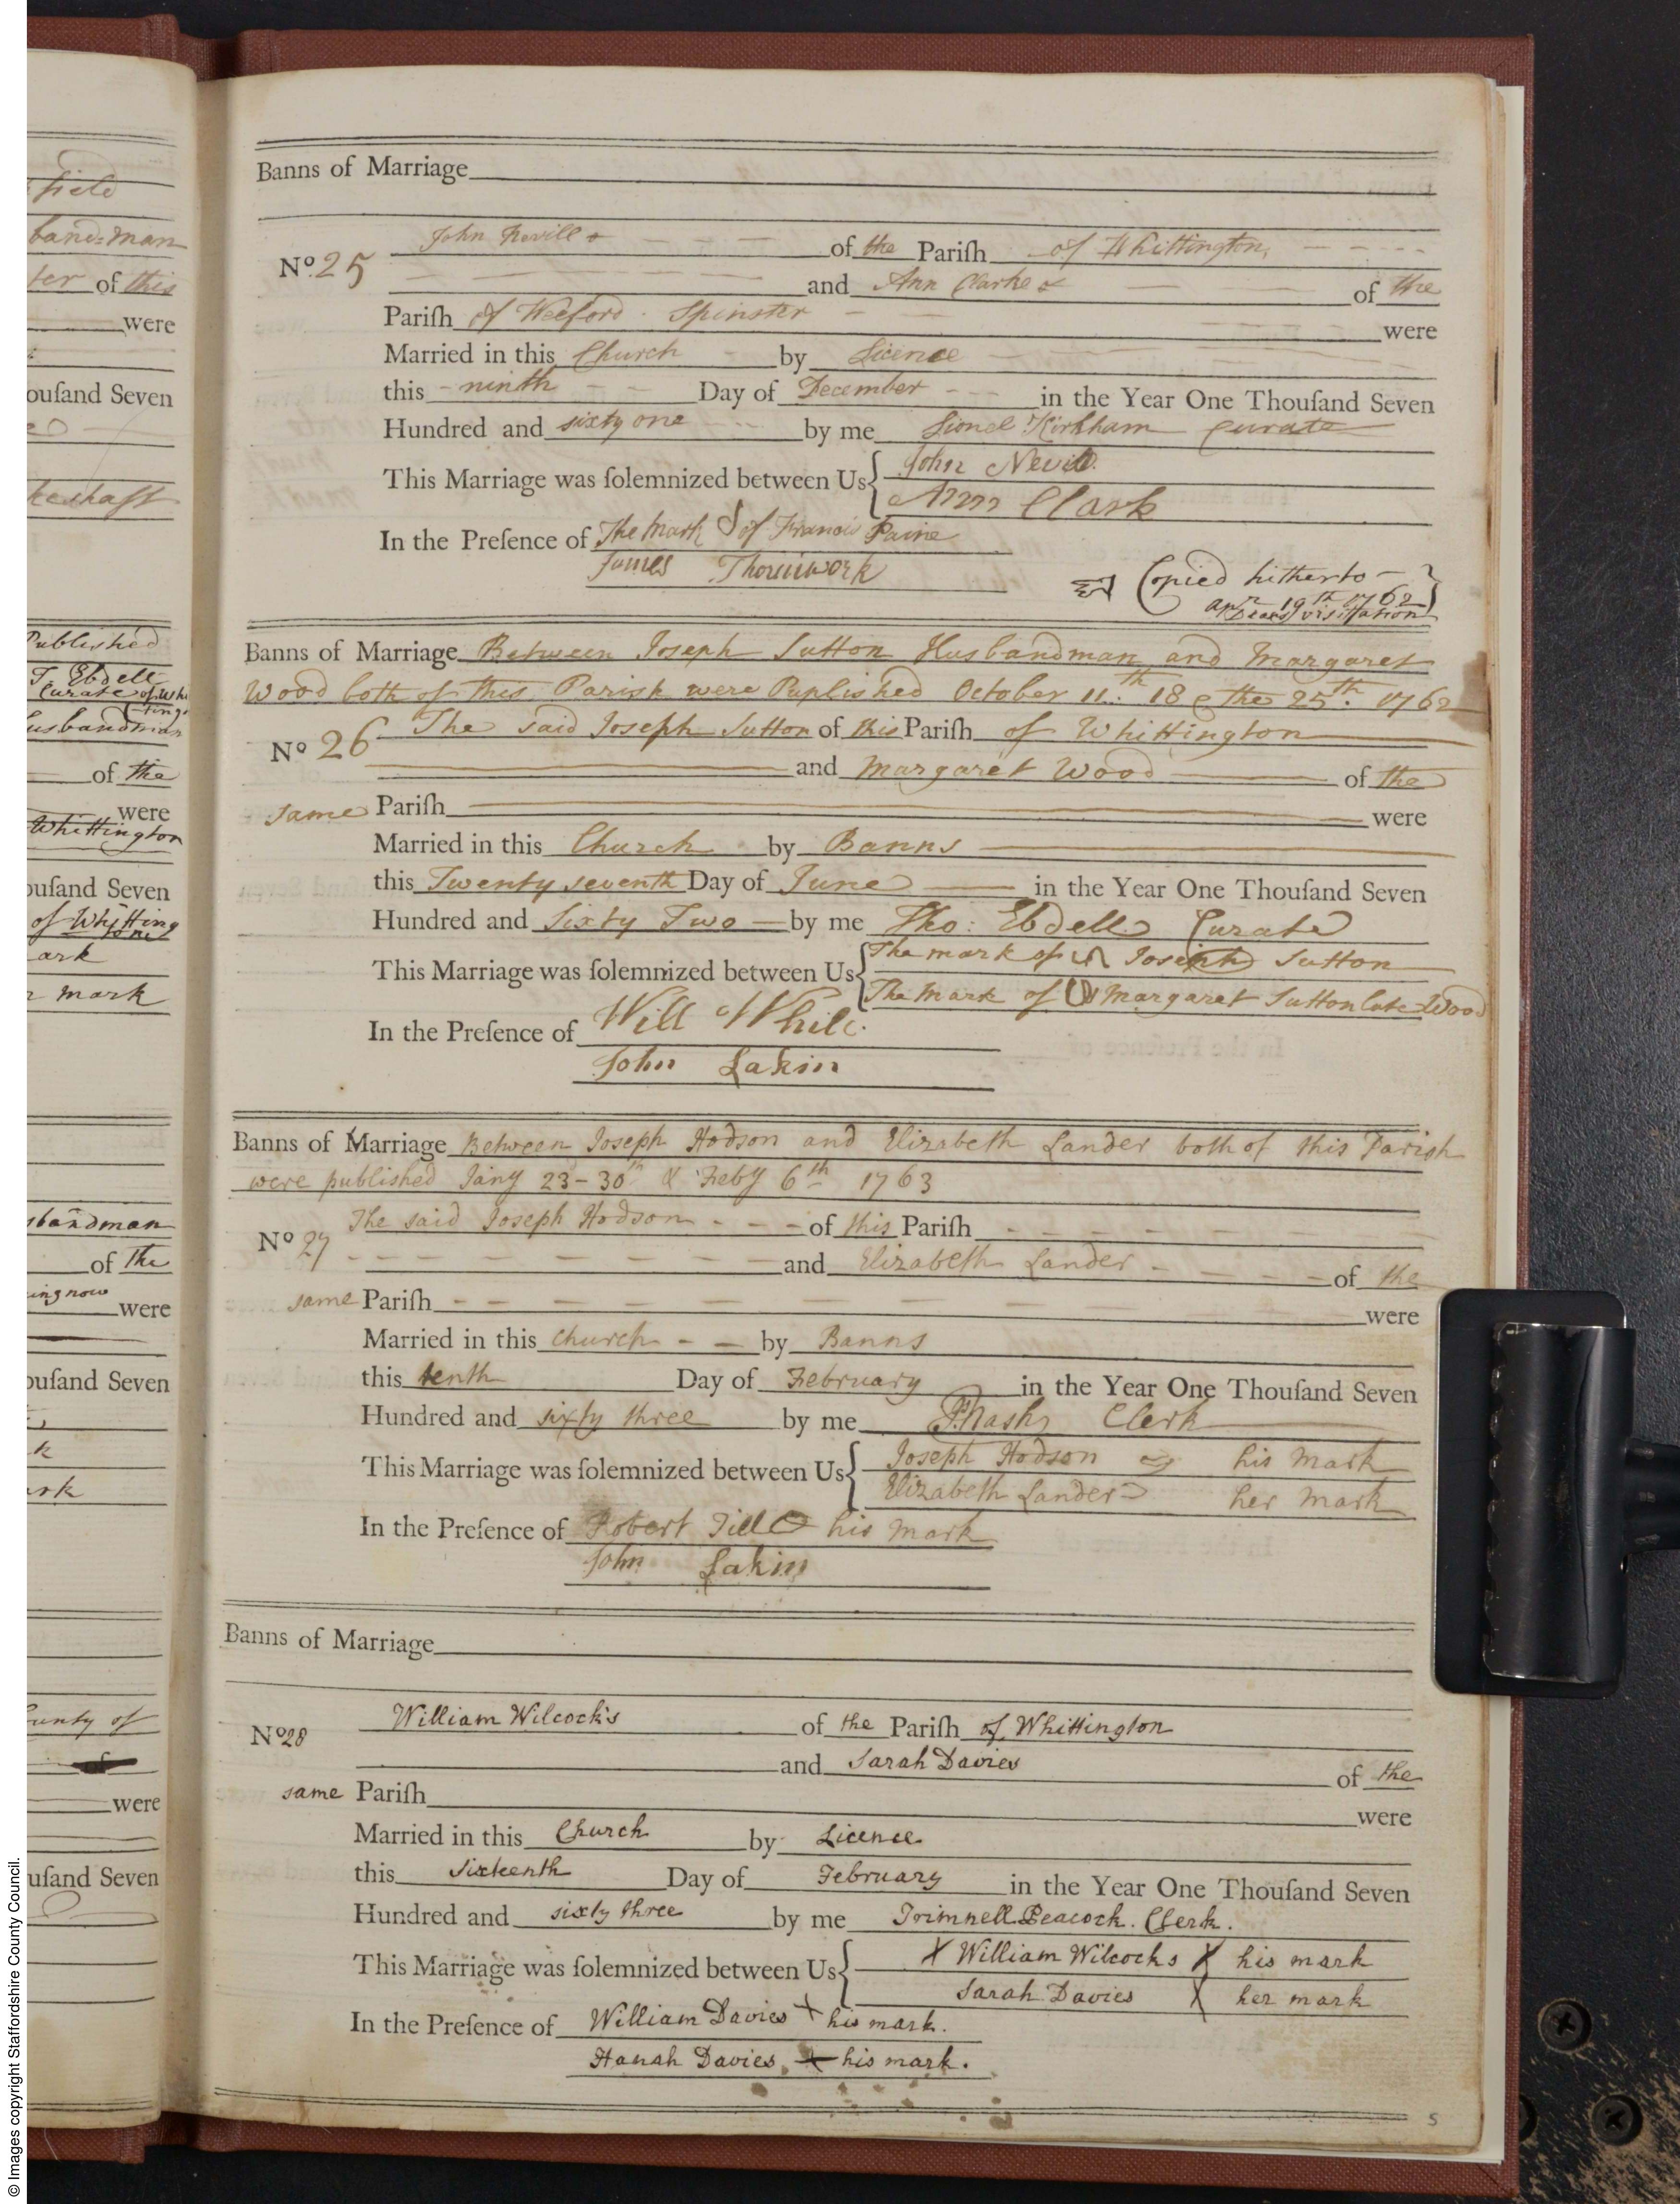 Banns of Marriage
John Nevill of the Pariſh of Whittington,
Nº 25
and Ann Clarke of the
Pariſh of Weeford Spinster were
Married in this Church by Licence
this ninth Day of December in the Year One Thouſand Seven
Hundred and sixty one by me Lionel Kirkham Curate
This Marriage was ſolemnized between Us John Nevill
Ann Clark
In the Preſence of The Mark of Francis Paine
James
Copied hitherto
19th 1762
visitation
Banns of Marriage Between Joseph Sutton Husbandman and Margaret
Wood both of this Parish were Puplished October 11th 18 & the 25th. 1762
Nº 26 The said Joseph Sutton of this Pariſh of Whittington
and Margaret Wood of the
same Pariſh were
Married in this Church by Banns
this Twenty seventh Day of June in the Year One Thouſand Seven
Hundred and Sixty Two by me Tho: Ebdell Curate
This Marriage was ſolemnized between Us The mark of Joseph Sutton
The Mark of Margaret Sutton late Wood
In the Preſence of Will White
John Lakin
Banns of Marriage Between Joseph Hodson and Elizabeth Lander both of this Parish
were published Jany 23-30th & Feby 6th 1763
Nº 27 The said Joseph Hodson of this Pariſh
and Elizabeth Lander of the
same Pariſh were
Married in this Church by Banns
this tenth Day of February in the Year One Thouſand Seven
Hundred and sixty three by me Nash Clerk
This Marriage was ſolemnized between Us Joseph Hodson his Mark
Elizabeth Lander her Mark
In the Preſence of Robert Till his Mark
John Lakin
Banns of Marriage
Nº 28 William Wilcocks of the Pariſh of Whittington
and Sarah Davies of the
same Pariſh were
Married in this Church by Licence
this Sixteenth Day of February in the Year One Thouſand Seven
Hundred and sixty three by me Trimnell Peacock. Clerk.
This Marriage was ſolemnized between Us X William Wilcocks X his mark
Sarah Davies X her mark
In the Preſence of William Davies + his mark.
Hanah Davies + his mark.
5
field
of this
were
ouſand Seven
Published
T. Ebdell
Curate of Whi
of the
were
Whittington
ouſand Seven
of Whitting
ark
mark
of the
were
ouſand Seven
of
were
uſand Seven
© Images copyright Staffordshire County Council.